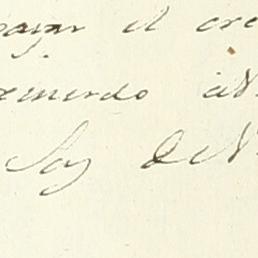 pagar el cre
remerdo a V.
Soy de V.